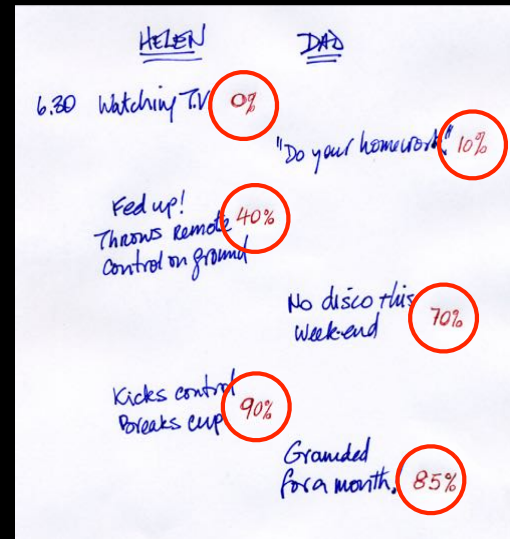 HELEN DAD
6.30 Watching T.V 0%
"Do your homework" 10%
Fed up! 40%
Throws Remote
Control on ground
No disco this 70%
Week-end
Kicks control 90%
Breaks cup
Grounded
for a month. 85%